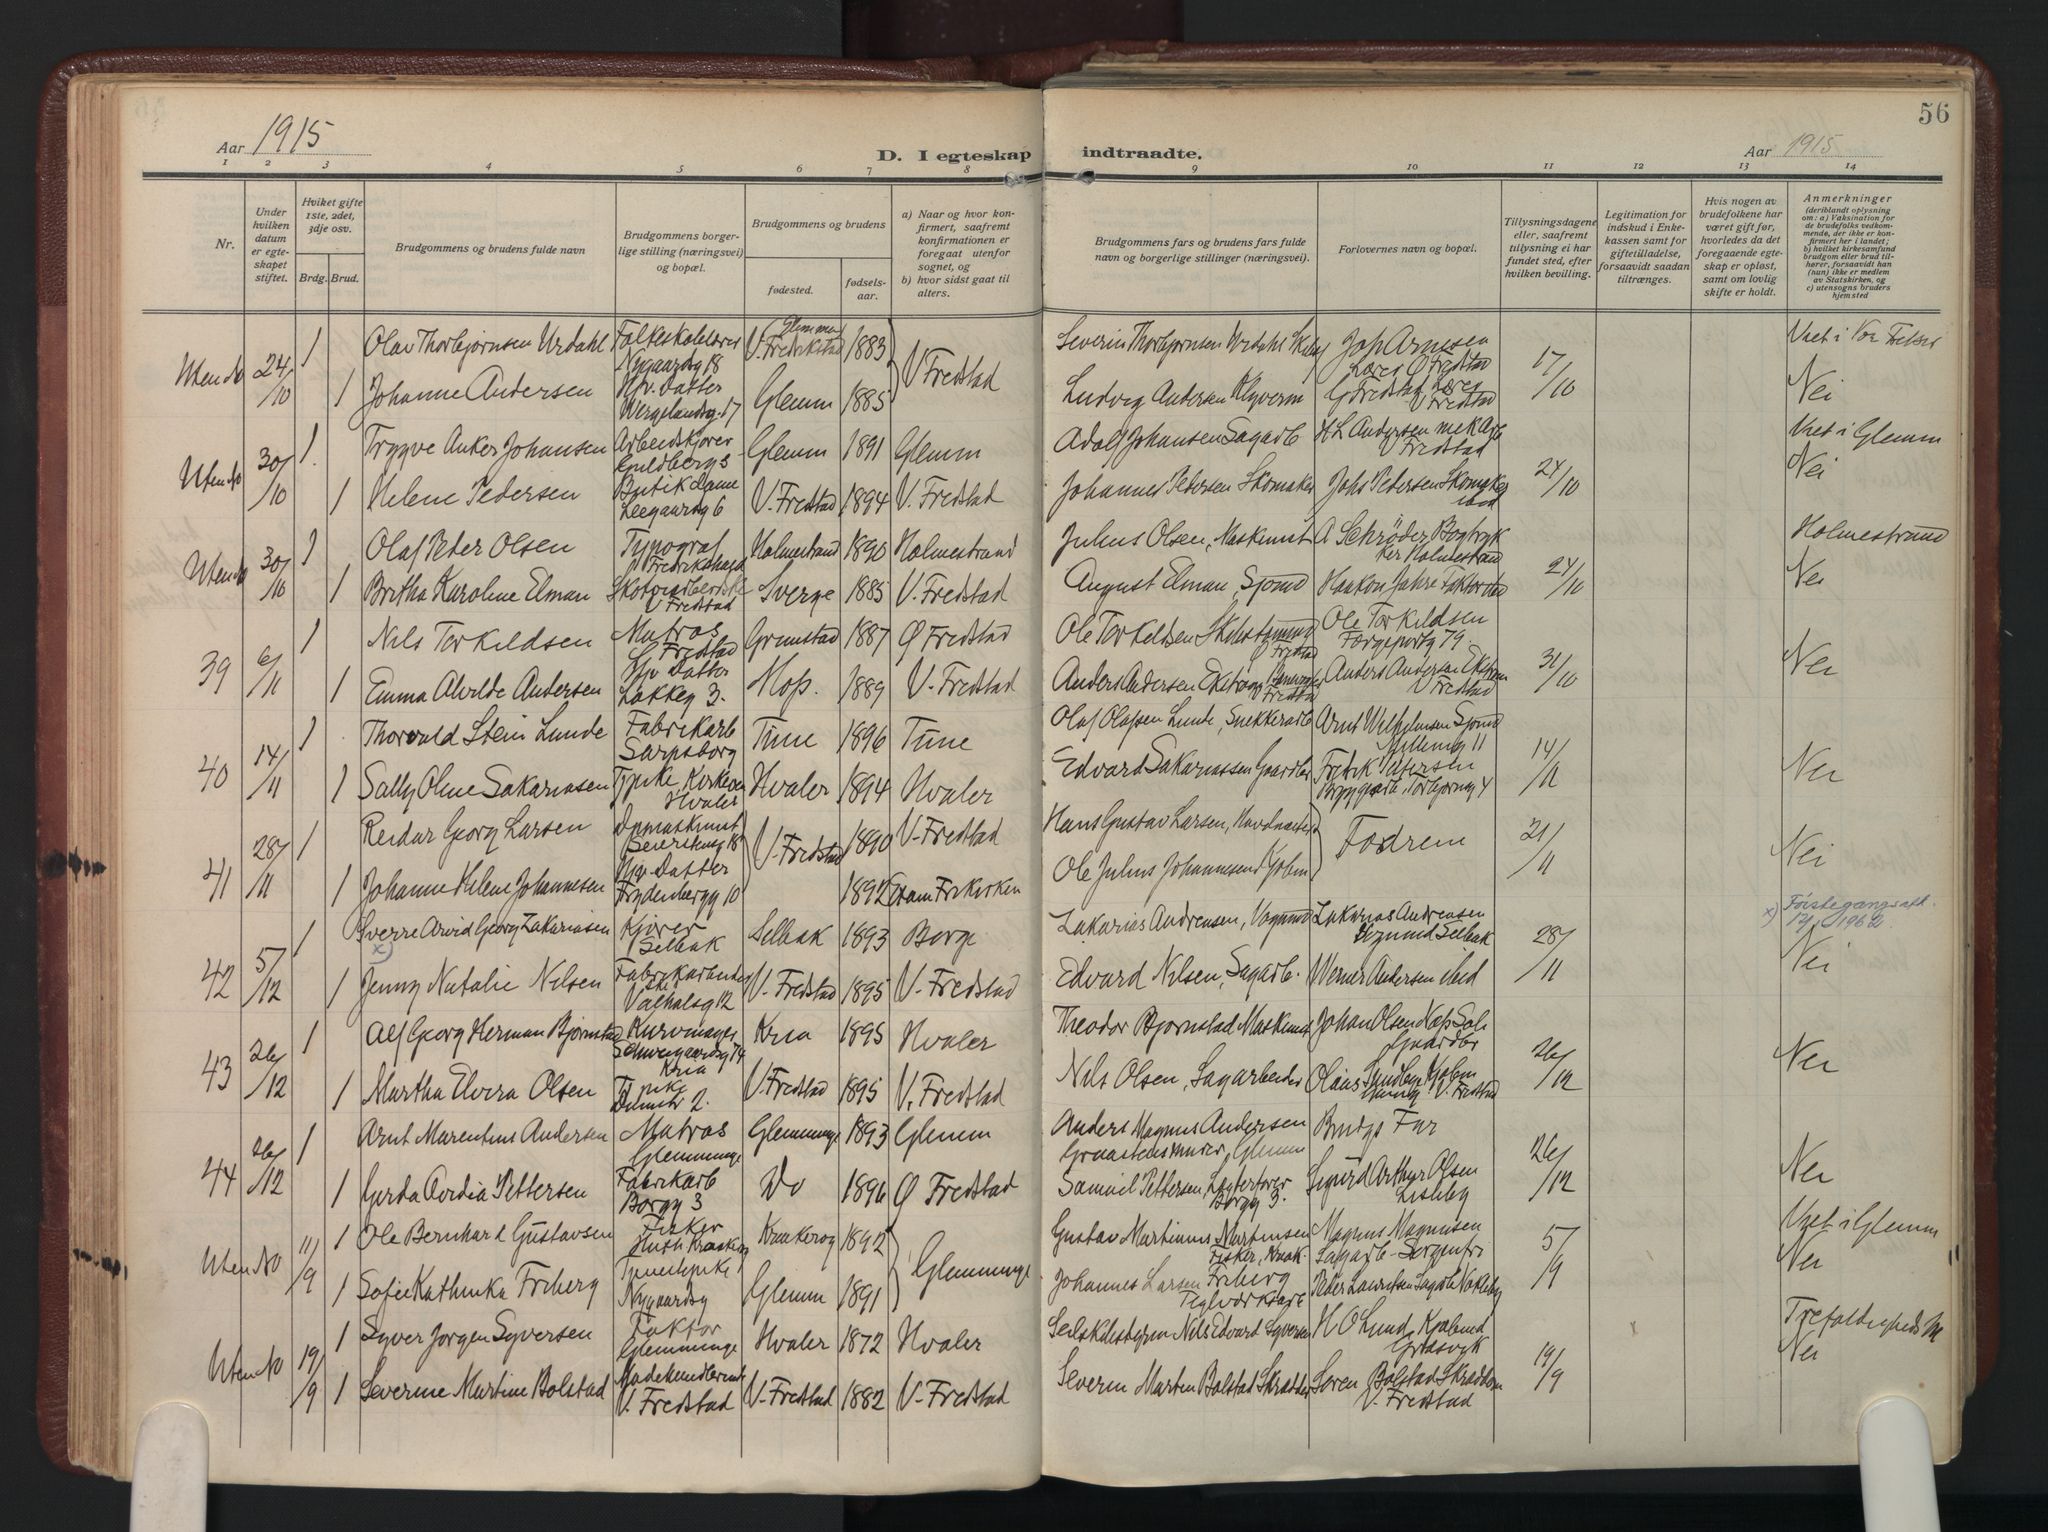 56
Aar 1915
D. I egteskap indtraadte.
Aar 1915
1 2 3 4 5 6 7 8 9 10 11 12 13 14
Nr.
Under hvilken datum er egteskapet stiftet.
Hviket gifte 1ste, 2det, 3dje osv.
Brdg. Brud.
Brudgommens og brudens fulde navn
Brudgommens borgerlige stilling (næringsvei) og bopæl.
Brudgommens og brudens
fødested.
fødselsaar.
a) Naar og hvor konfirmert, saafremt konfirmationen er foregaat utenfor sognet, og
b) hvor sidst gaat til alters.
Brudgommens fars og brudens fars fulde navn og borgerlige stillinger (næringsvei).
Forlovernes navn og bopæl.
Tillysningsdagene eller, saafremt tillysning ei har fundet sted, efter hvilken bevilling.
Legitimation for indskud i Enkekassen samt for giftetilladelse, forsaavidt saadan tiltrænges.
Hvis nogen av brudefolkene har været gift før, hvorledes da det foregaaende egteskap er opløst, samt om lovlig skifte er holdt.
Anmerkninger
(deriblandt oplysning om: a) Vaksination for de brudefolks vedkommende, der ikke er konfirmert her i landet; b) hvilket kirkesamfund brudgom eller brud tilhører, forsaavidt han (hun) ikke er medlem av Statskirken, og c) utensogns bruders hjemsted
Uten No 24/10 1 Olav Thorbjørnsen Urdahl Folkeskolelærer Nygaardsg 18 Glemm V. Fredrikstad 1883 V Fredstad Severin Thorbjørnsen Urdahl Joh Arnesen Lærer Ø Fredstad 17/10 Viet i Vor Frelser
1 Johanne Andersen Hjv. Datter Wergelandsg. 17 Glemm 1885 Ludvig Andersen Klyverm Fredstad Nei
Uten No 30/10 1 Trygve Anker Johansen Arbeidskjører Guldbergs Glemm 1891 Glemm Adolf Johansen Sagarb H L Andersen mek Arb V Fredstad 24/10 Viet i Glemm
1 Helene Pedersen Butikdame Leegaardsg 6 V. Fredstad 1894 V. Fredstad Johannes Pedersen Skomaker Johs Pedersen Skomaker ibid Nei
Uten No 30/10 1 Olaf Peter Olsen Typograf Fredrikshald Holmestrand 1890 Holmestrand Julius Olsen, Maskinist A Schrøder Bogtrykker Holmestrand 24/10 Holmestrand
1 Britha Karoline Elman V Fredstad Sverge 1885 V. Fredstad August Elman, Sjømd Haakon Jahre Faktor ibid Nei
39 6/11 1 Nils Torkildsen Matros Fredstad Grimstad 1887 Ø Fredstad Ole Torkildsen Ø Fredstad Ole Torkildsen Færgeportg 79. 31/10 Nei
1 Emma Alvilde Andersen Hjv Datter Løkkeg 3. Moss. 1889 V. Fredstad Anders Andersen Ekstrøm Fredstad Anders Andersen Ekstrøm V Fredstad
40 14/11 1 Thorvald Stein Lunde Fabrikarb Sarpsborg Tune 1896 Tune Olaf Olafsen Lunde, Snekkerarb Arnt Wilhelmsen Sjømd 11 14/11 Nei
1 Sally Oline Sakariasen Tjpike, Kirkeøen Hvaler Hvaler 1894 Hvaler Edvard Sakariassen Gaardbr Fredrik Pettersen Bryggearb, Torbjørnsg 4
41 28/11 1 Reidar Georg Larsen V. Fredstad 1890 V. Fredstad Hans Gustav Larsen, Havnearbeid Fædrene 21/11 Nei
1 Johanne Helene Johannesen Hjv. Datter Frydenbergg 10 1892 Fram Frikirken Ole Julius Johannesen
42 5/12 1 Sverre Arvid Georg Zakariasen x) Kjører Selbak Selbak 1893 Borge Zakarias Andreasen, Vognmd Zakarias Andreasen Vognmd Selbak 28/11 Nei
x) Første gangs att.
1 Jenny Natalie Nilsen Fabrikarbeiderske Valhalsg 12 V. Fredstad 1895 V. Fredstad Edvard Nilsen, Sagarb. Werner Andersen ibid
43 26/12 1 Alf Georg Herman Bjørnstad Kurvmager Schweigaardsg 74 Kria Kria 1895 Hvaler Theodor Bjørnstad Maskinist Johan Olsen Gaardbr 26/12 Nei
1 Martha Elvira Olsen Tjpike 2. V. Fredstad 1895 V. Fredstad Nils Olsen, Sagarbeider Olaus Sundby V. Fredstad
44 26/12 1 Arnt Marentius Andersen Matros Glemminge Glemminge 1893 Glemm Anders Magnus Andersen Graastensmurer, Glemm Brudgs Far 26/12 Nei
1 Gerda Ovidia Pettersen Fabrikarb Borgg 3 Do 1896 Ø Fredstad Samuel Pettersen, Borgg 3. Sigurd Arthur Olsen Lisleby
Uten No 11/9 1 Ole Bernhard Gustavsen Fisker Kraakerøy 1892 Glemminge Gustav Martinius Martinsen Fisker, Kraak. Magnus Magnusen Sagarb - Sorgenfri 5/9 Viet i Glemm
1 Sofie Kathinka Friberg Tjenestepike Nygaardsg Glemm 1891 Johannes Larsen Friberg Teglværksarb Peder Lauritsen Sagarb Nei
Uten No 19/9 1 Syver Jørgen Syversen Faktor Glemminge Hvaler 1872 Hvaler Nils Edvard Syversen H O Lund Kjøbmd Gresvik 19/9 Trefoldigheds M
1 Severine Martine Bolstad Modehandlerinde V. Fredstad V. Fredstad 1882 V. Fredstad Severin Morten Bolstad Skrædder Søren Bolstad Skrædder V. Fredstad Nei